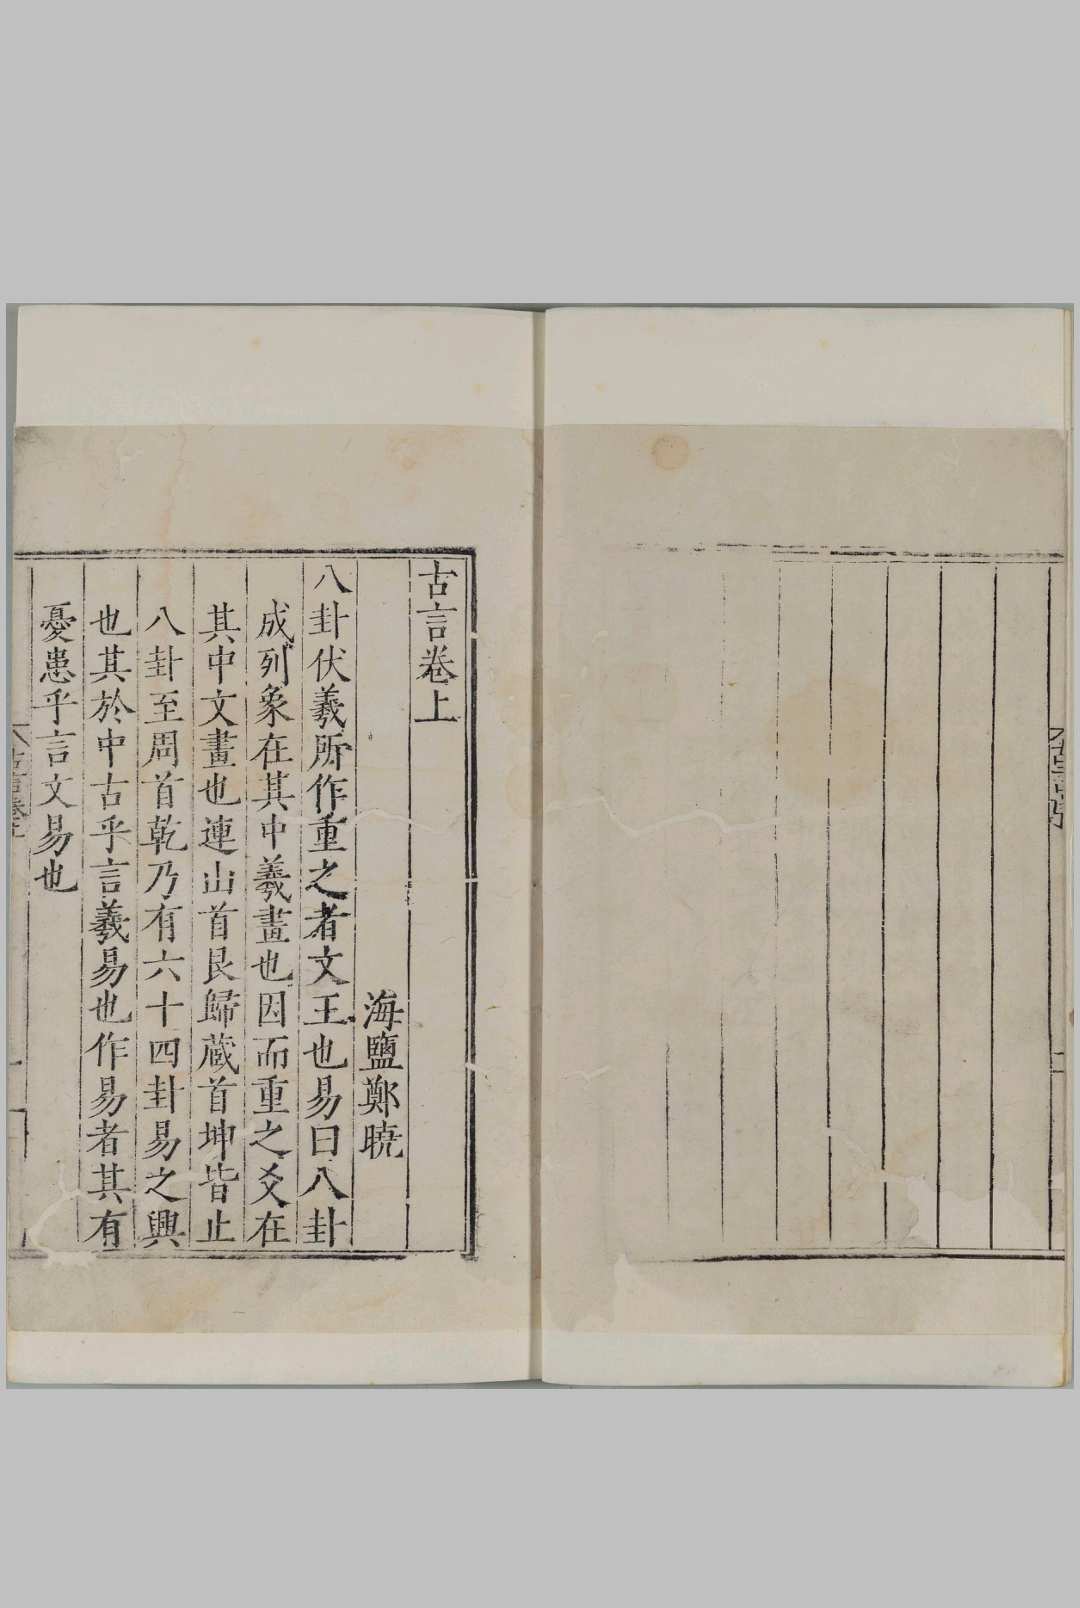 古言卷上
海鹽鄭曉
八卦伏羲所作重之者文王也易曰八卦
成列象在其中羲畫也因而重之爻在
其中文畫也連山首艮歸藏首坤皆止
八卦至周首乾乃有六十四卦易之興
也其於中古乎言羲易也作易者其有
憂患乎言文易也
古言卷上
一